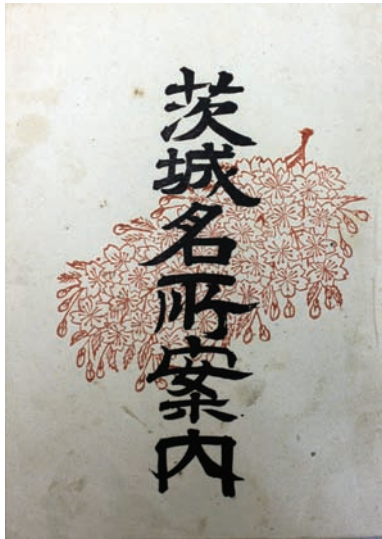 茨城名所案内